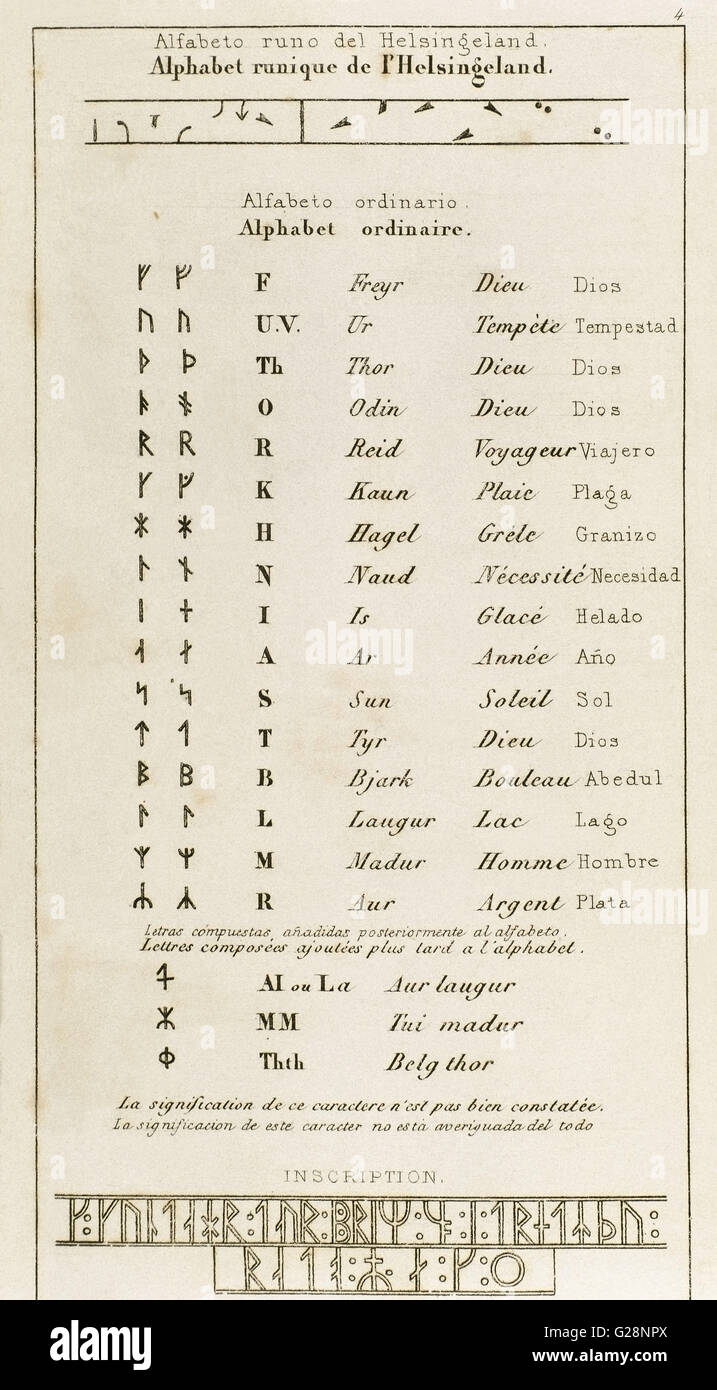 4
Alfabeto runo del Helsingeland.
Alphabet runique de l'Helsingeland.
Alfabeto ordinario.
Alphabet ordinaire.
ᚠ ᚠ F Freyr Dieu Dios
ᚢ ᚢ U.V. Ur Tempète Tempestad
ᚦ ᚦ Th Thor Dieu Dios
ᚨ ᚬ O Odin Dieu Dios
ᚱ ᚱ R Reid Voyageur Viajero
ᚴ ᚴ K Kaun Plaie Plaga
ᚼ ᚼ H Hagel Grèle Granizo
ᚾ N Naud Nécessité Necesidad
ᛁ I Is Glacé Helado
ᛆ ᛅ A Ar Année Año
ᛋ ᛋ S Sun Soleil Sol
ᛏ ᛐ T Tyr Dieu Dios
ᛒ ᛒ B Bjark Bouleau Abedul
ᛚ ᛚ L Laugur Lac Lago
ᛘ ᛘ M Madur Homme Hombre
ᛦ ᛦ R Aur Argent Plata
Letras compuestas, añadidas posteriormente al alfabeto.
Lettres composées ajoutées plus tard a l'alphabet.
Al ou La Aur laugur
MM Tui madur
Thth Belg thor
La signification de ce caractere n'est pas bien constatée.
La significacion de este caracter no està averiguada del todo
INSCRIPTION.
alamy
alamy stock photo
G28NPX
www.alamy.com